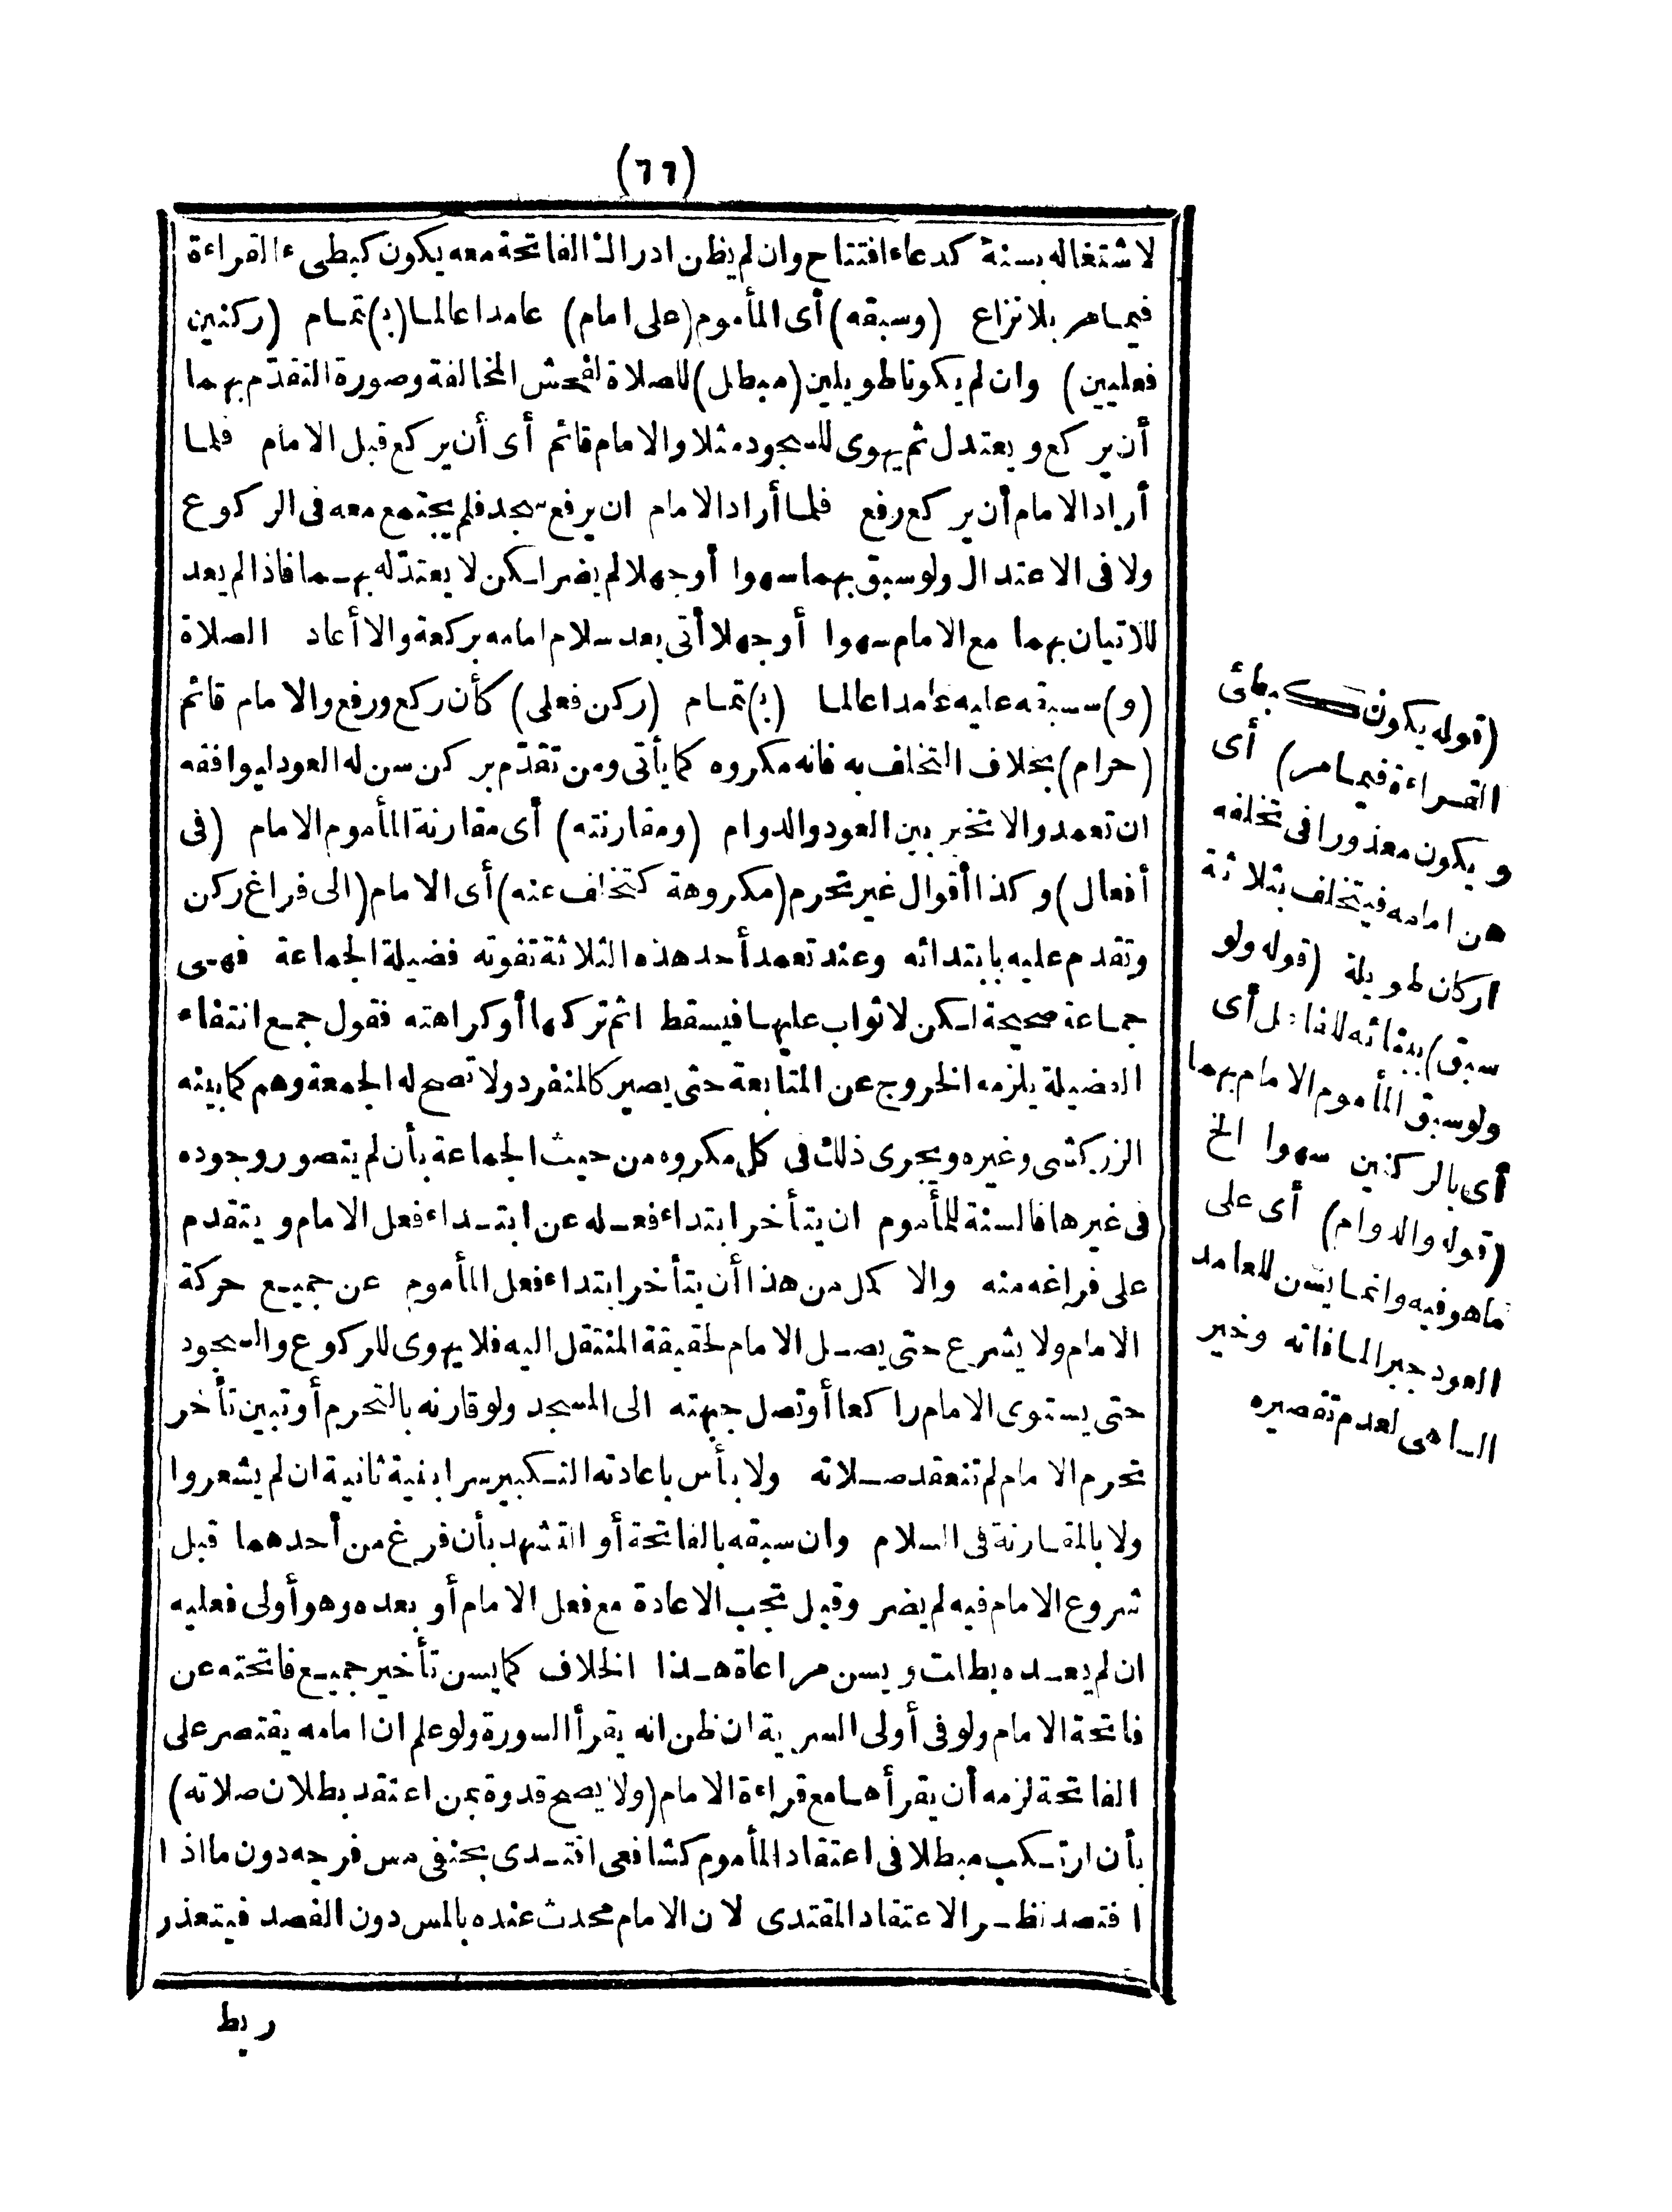 (٦٦)
لاشتغاله بسنة كدعاء افتتاح وان لم يظن ادراك الفاتحة معه يكون كبطىء القراءة
فيما مر بلا نزاع (وسبقه) أى المأموم (على امام) عامدا عالما (ب) تمام (ركنين
فعليين) وان لم يكونا طويلين (مبطل) للصلاة لفحش المخالفة وصورة التقدّم بهما
أن يركع ويعتدل ثم يهوى للسجود مثلا والامام قائم أى أن يركع قبل الامام فلما
أراد الامام أن يركع رفع فلما أراد الامام ان يرفع سجد فلم يجتمع معه فى الركوع
ولا فى الاعتدال ولو سبق بهما سهوا أو جهلا لم يضر لكن لا يعتدّ له بهما فاذا لم يعد
للاتيان بهما مع الامام سهوا أو جهلا أتى بعد سلام امامه بركعة والا أعاد الصلاة
(و) سبقه عليه عامدا عالما (ب) تمام (ركن فعلى) كأن ركع ورفع والامام قائم
(حرام) بخلاف التخلف به فانه مكروه كما يأتى ومن تقدّم بركن سن له العود ليوافقه
ان تعمد والا تخير بين العود والدوام (ومقارنته) أى مقارنة المأموم الامام (فى
أفعال) وكذا أقوال غير تحرم (مكروهة كتخلف عنه) أى الامام (الى فراغ ركن
وتقدم عليه بابتدائه وعند تعمد أحد هذه الثلاثة تفوته فضيلة الجماعة فهى
جماعة صحيحة لكن لا ثواب عليها فيسقط اثم تركها أو كراهته فقول جمع انتفاء
الفضيلة يلزمه الخروج عن المتابعة حتى يصير كالمنفرد ولا تصح له الجمعة وهم كما بينه
الزركشى وغيره ويجرى ذلك فى كل مكروه من حيث الجماعة بأن لم يتصور وجوده
فى غيرها فالسنة للمأموم ان يتأخر ابتداء فعله عن ابتداء فعل الامام ويتقدم
على فراغه منه والاكمل من هذا أن يتأخر ابتداء فعل المأموم عن جميع حركة
الامام ولا يشرع حتى يصل الامام لحقيقة المنتقل اليه فلا يهوى للركوع والسجود
حتى يستوى الامام راكعا أو تصل جبهته الى المسجد ولو قارنه بالتحرم أو تبين تأخر
تحرم الامام لم تنعقد صلاته ولا بأس باعادته التكبير سرا بنية ثانية ان لم يشعروا
ولا بالمقارنة فى السلام وان سبقه بالفاتحة أو التشهد بأن فرغ من أحدهما قبل
شروع الامام فيه لم يضر وقيل تجب الاعادة مع فعل الامام أو بعده وهو أولى فعليه
ان لم يعده بطلت ويسن مراعاة هذا الخلاف كما يسن تأخير جميع فاتحته عن
فاتحة الامام ولو فى أولى السرية ان ظن انه يقرأ السورة ولو علم ان امامه يقتصر على
الفاتحة لزمه أن يقرأها مع قراءة الامام (ولا يصح قدوة بمن اعتقد بطلان صلاته)
بأن ارتكب مبطلا فى اعتقاد المأموم كشافعى اقتدى بحنفى مس فرجه دون ما اذا
افتصد نظرا لاعتقاد المقتدى لان الامام محدث عنده بالمس دون الفصد فيتعذر
ربط
(قوله يكون كبطئ
القراءة فيما مر) أى
ويكون معذورا فى تخلفه
عن امامه فيتخلف بثلاثة
اركان طويلة (قوله ولو
سبق) ببنائه للفاعل أى
ولو سبق المأموم الامام بهما
أى بالركنين سهوا الخ
(قوله والدوام) أى على
ما هو فيه وانما يسن للعامد
العود جبرا لما فاته وخير
الساهى لعدم تقصيره